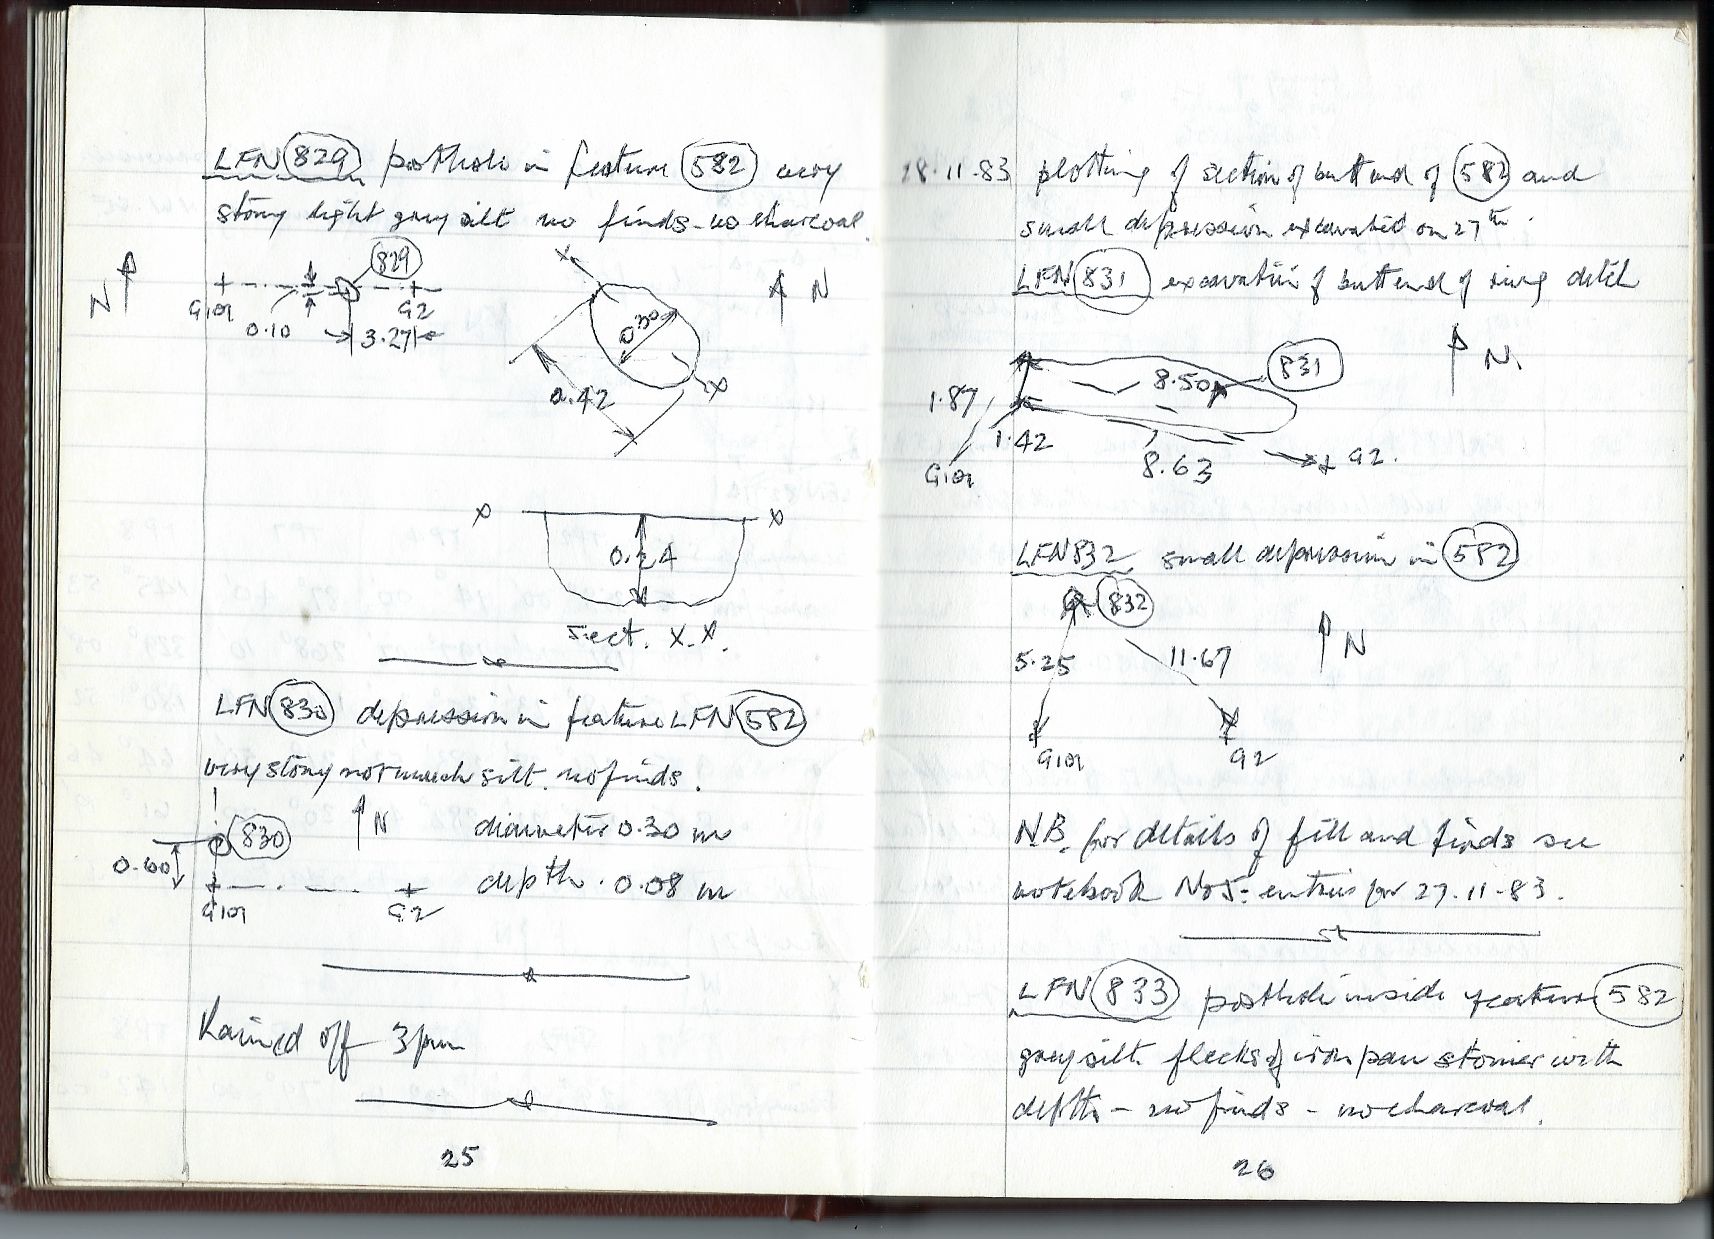 LFN 829 posthole in feature 582 very
stony light grey silt no finds - no charcoal.
829
N
N
G101
G2
0.10
3.27
X
0.30
0.42
X
X
X
0.24
Sect. X.X.
LFN 830 depression in feature LFN 582
very stony not much silt. no finds.
830
N
diameter 0.30 m
0.60
depth . 0.08 m
G101
G2
Rained off 3pm
25
28.11.83 plotting of section of butt end of 582 and
small depression excavated on 27th.
LFN 831 excavation of butt end of ring ditch
N.
831
8.50
1.87
1.42
8.63
G2.
G101
LFN 832 small depression in 582
832
5.25
11.67
N
G101
G2
N.B. for details of fill and finds see
notebook No 5: entries for 27.11.83.
LFN 833 posthole inside feature 582
grey silt flecks of iron pan stonier with
depth - no finds - no charcoal.
26